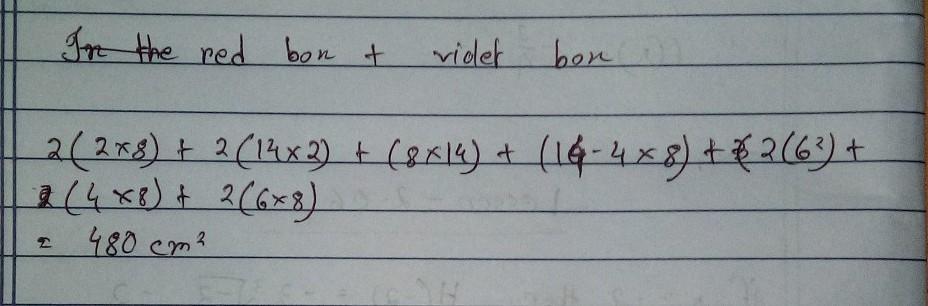 In the red box + violet box
2(2×8) + 2(14×2) + (8×14) + (14-4×8) + 2(6²) +
(4×8) + 2(6×8)
= 480 cm²